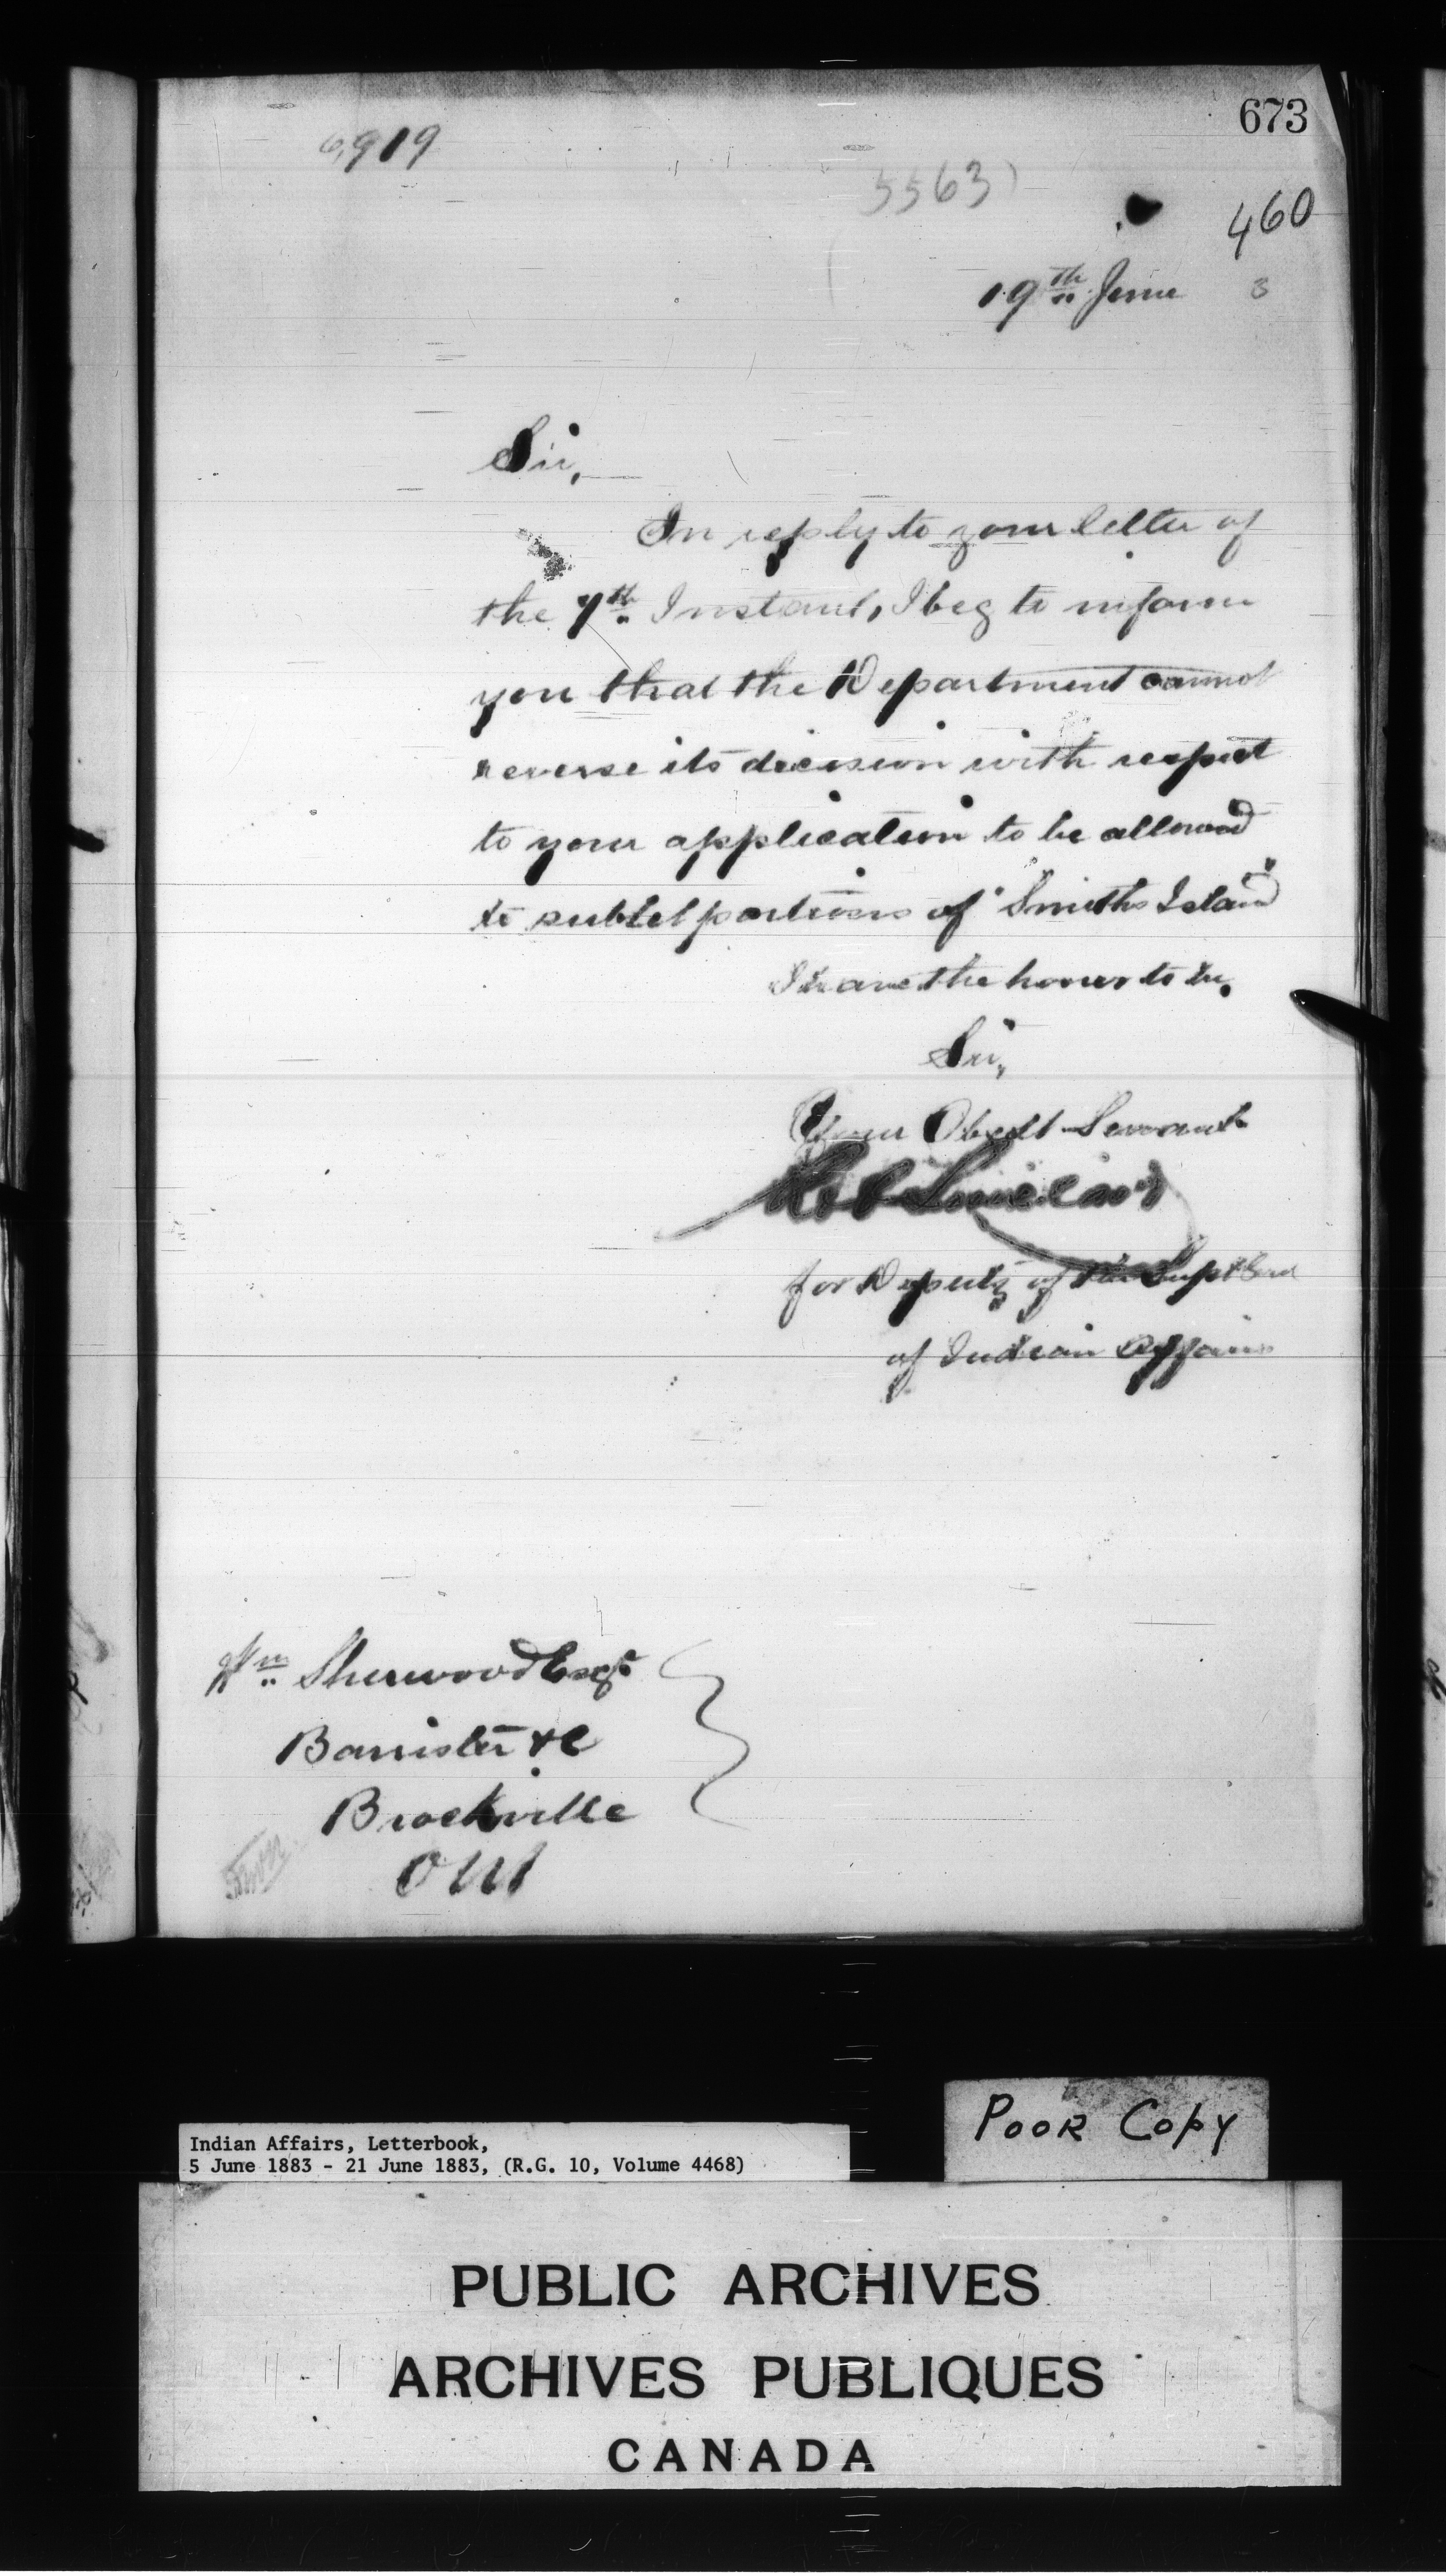 673
6,919
5563
460
19th June 3
Sir,
In reply to your letter of
the 7th Instant, I beg to inform
you that the Department cannot
reverse its decision with respect
to your application to be allowed
to sublet portions of "Smiths Island"
I have the honor to be,
Sir,
Your Obedt Servant
for Deputy of the Supt Genl
of Indian Affairs
Wm Sherwood Esqr
Barrister &c
Brockville
Ont
POOR COPY
Indian Affairs, Letterbook,
5 June 1883 - 21 June 1883, (R.G. 10, Volume 4468)
PUBLIC ARCHIVES
ARCHIVES PUBLIQUES
CANADA